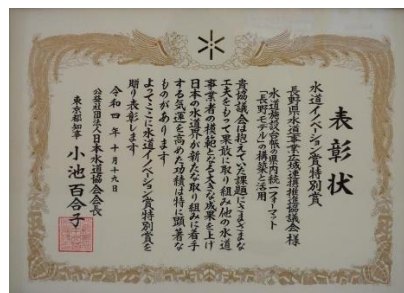 表彰状
水道イノベーション賞特別賞
長野県水道事業広域連携推進協議会様
水道施設台帳の県内統一フォーマット
「長野モデル」の構築と活用
貴協議会は抱えていた課題にさまざまな
工夫をもって果敢に取り組み他の水道
事業者の模範となる大きな成果を上げ
日本の水道界が新たな取り組みに着手
する気運を高めた功績は特に顕著な
ものがあります
よってここに水道イノベーション賞特別賞を
贈り表彰します
令和四年十月十九日
公益社団法人日本水道協会会長
東京都知事 小池百合子